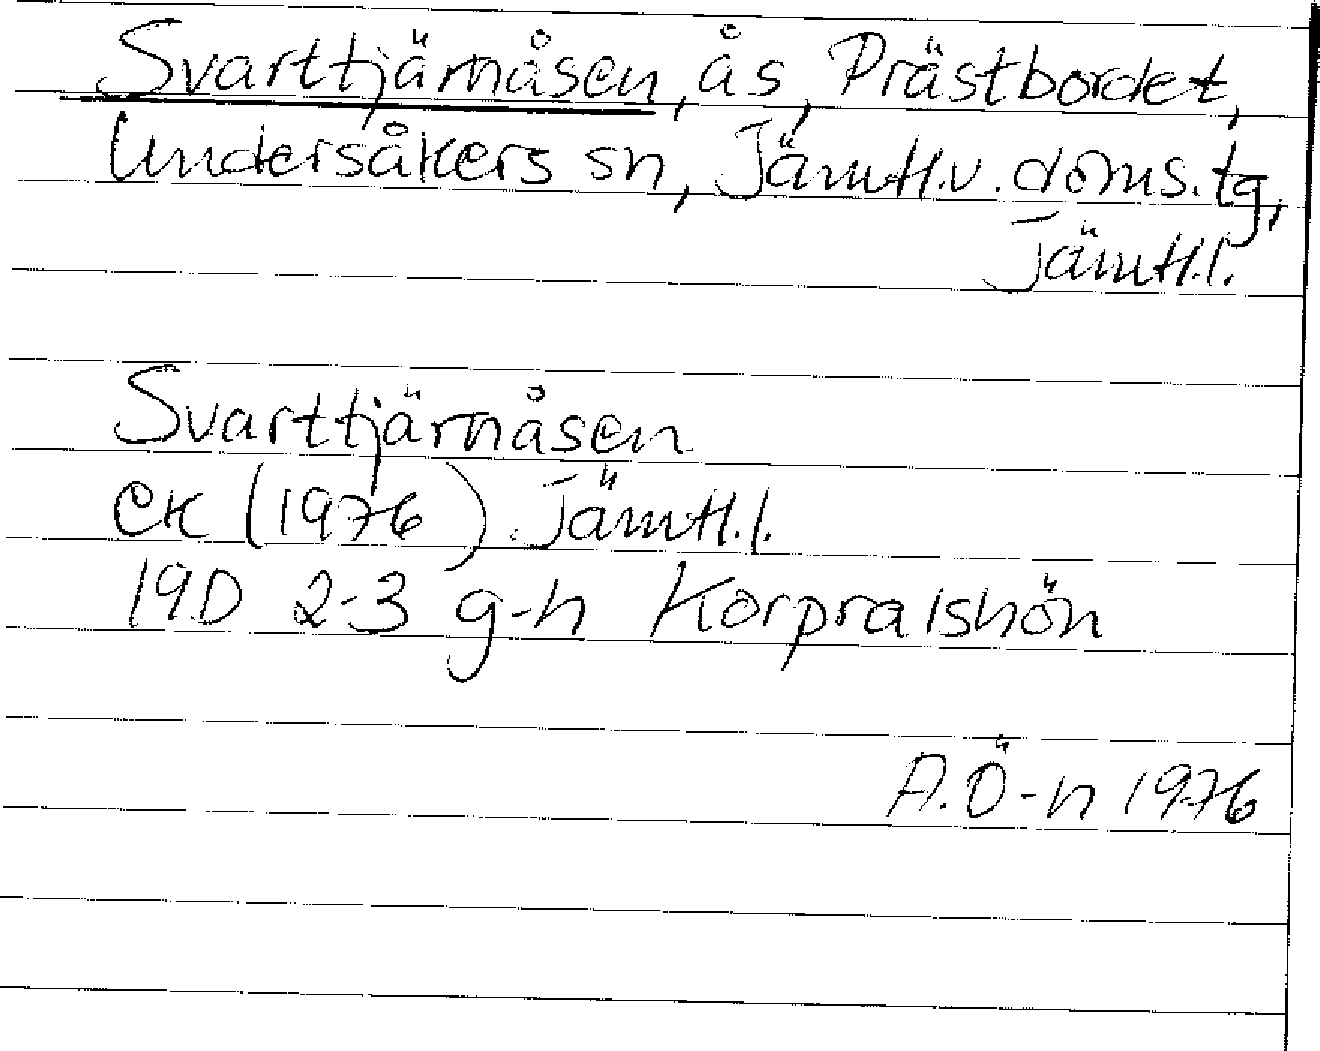 Svarttjärnåsen, ås, Prästbordet,
Undersåkers sn, Jämtl.v.doms.tg,
Jämtl.l.
Svarttjärnåsen
EK (1976) Jämtl.l.
19D 2-3 g-h Korpralshön
A.Ö-n 1976